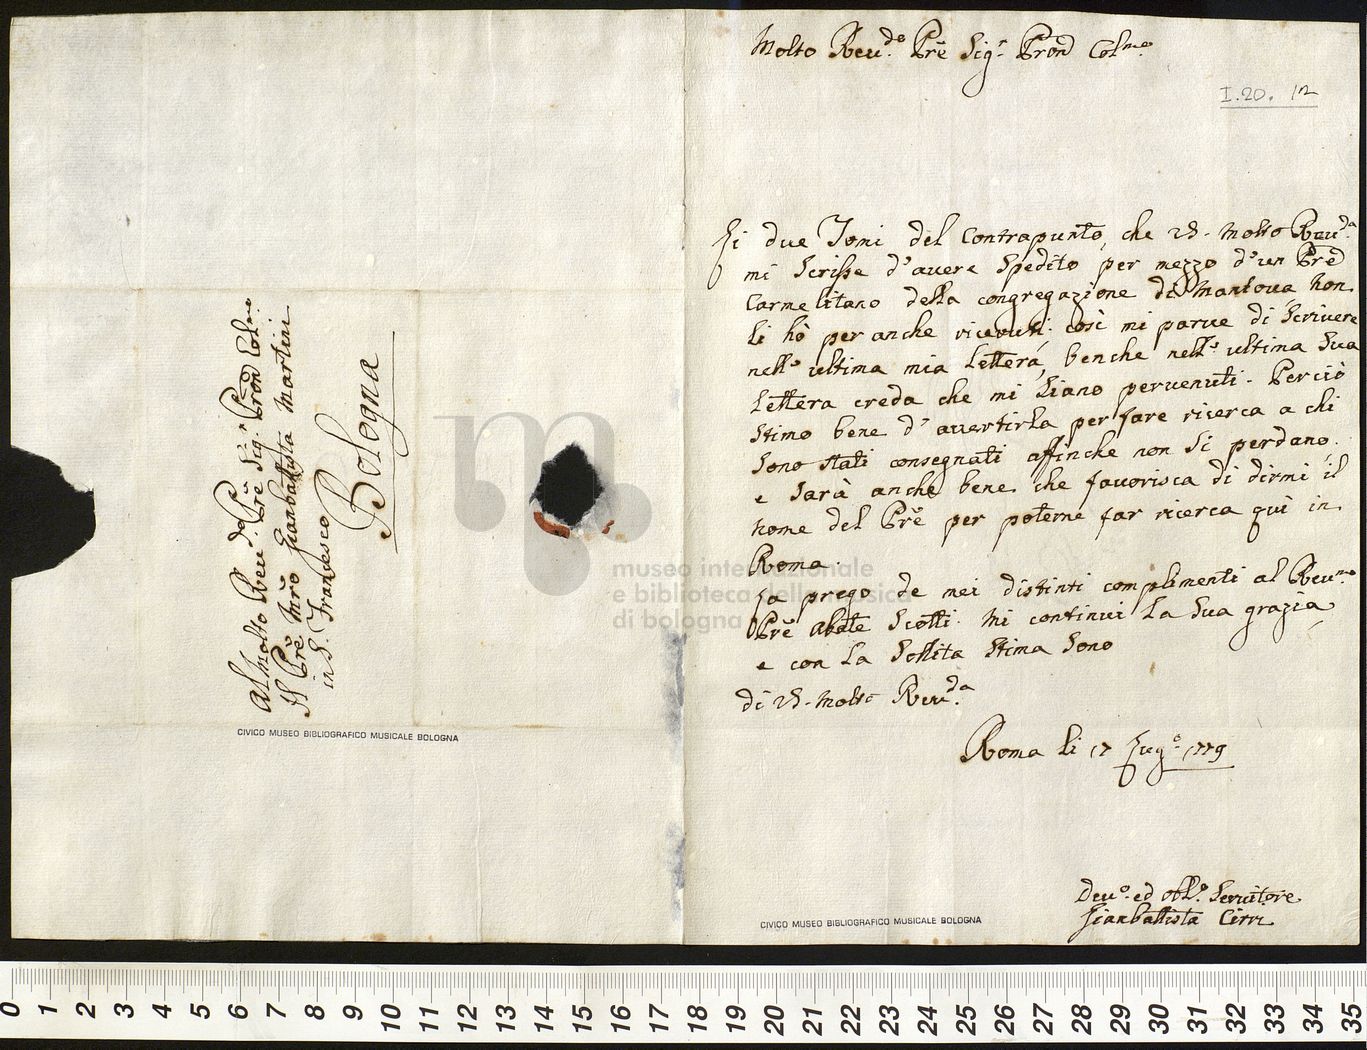 Molto Reu.do Prē Sig.r Prōn Col.mo
I.20. 12
Li due Tomi del Contrapunto, che V.S. Molto Reu.da
mi scrisse d'auere spedito per mezzo d'un Prē
Carmelitano della congregazione di Mantoua non
li hò per anche riceuuti. così mi parue di scriuere
nell'ultima mia Lettera, benche nell'ultima Sua
Lettera creda che mi siano peruenuti. Perciò
stimo bene d'auertirla per fare ricerca a chi
sono stati consegnati affinche non si perdano.
e sarà anche bene che fauorisca di dirmi il
nome del Prē per poterne far ricerca quì in
Roma.
La prego de miei distinti complimenti al Reu.mo
Prē Abate Scotti. Mi continui la sua grazia
e con la solita stima sono
di V.S. Molto Reu.da
Roma li 17 Lug.o 1779
Deu.o ed obl.o Seruitore
Gianbattista Cirri
Al Molto Reu.do Prē Sig.r Prōn Col.mo
Il Prē Mrō Gianbattista Martini
in S. Francesco
Bologna
CIVICO MUSEO BIBLIOGRAFICO MUSICALE BOLOGNA
CIVICO MUSEO BIBLIOGRAFICO MUSICALE BOLOGNA
museo internazionale
e biblioteca della musica
di bologna
0 1 2 3 4 5 6 7 8 9 10 11 12 13 14 15 16 17 18 19 20 21 22 23 24 25 26 27 28 29 30 31 32 33 34 35